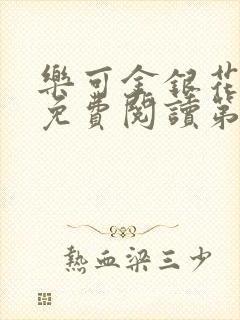 樂可金銀花
免費閱讀第
熱血梁三少